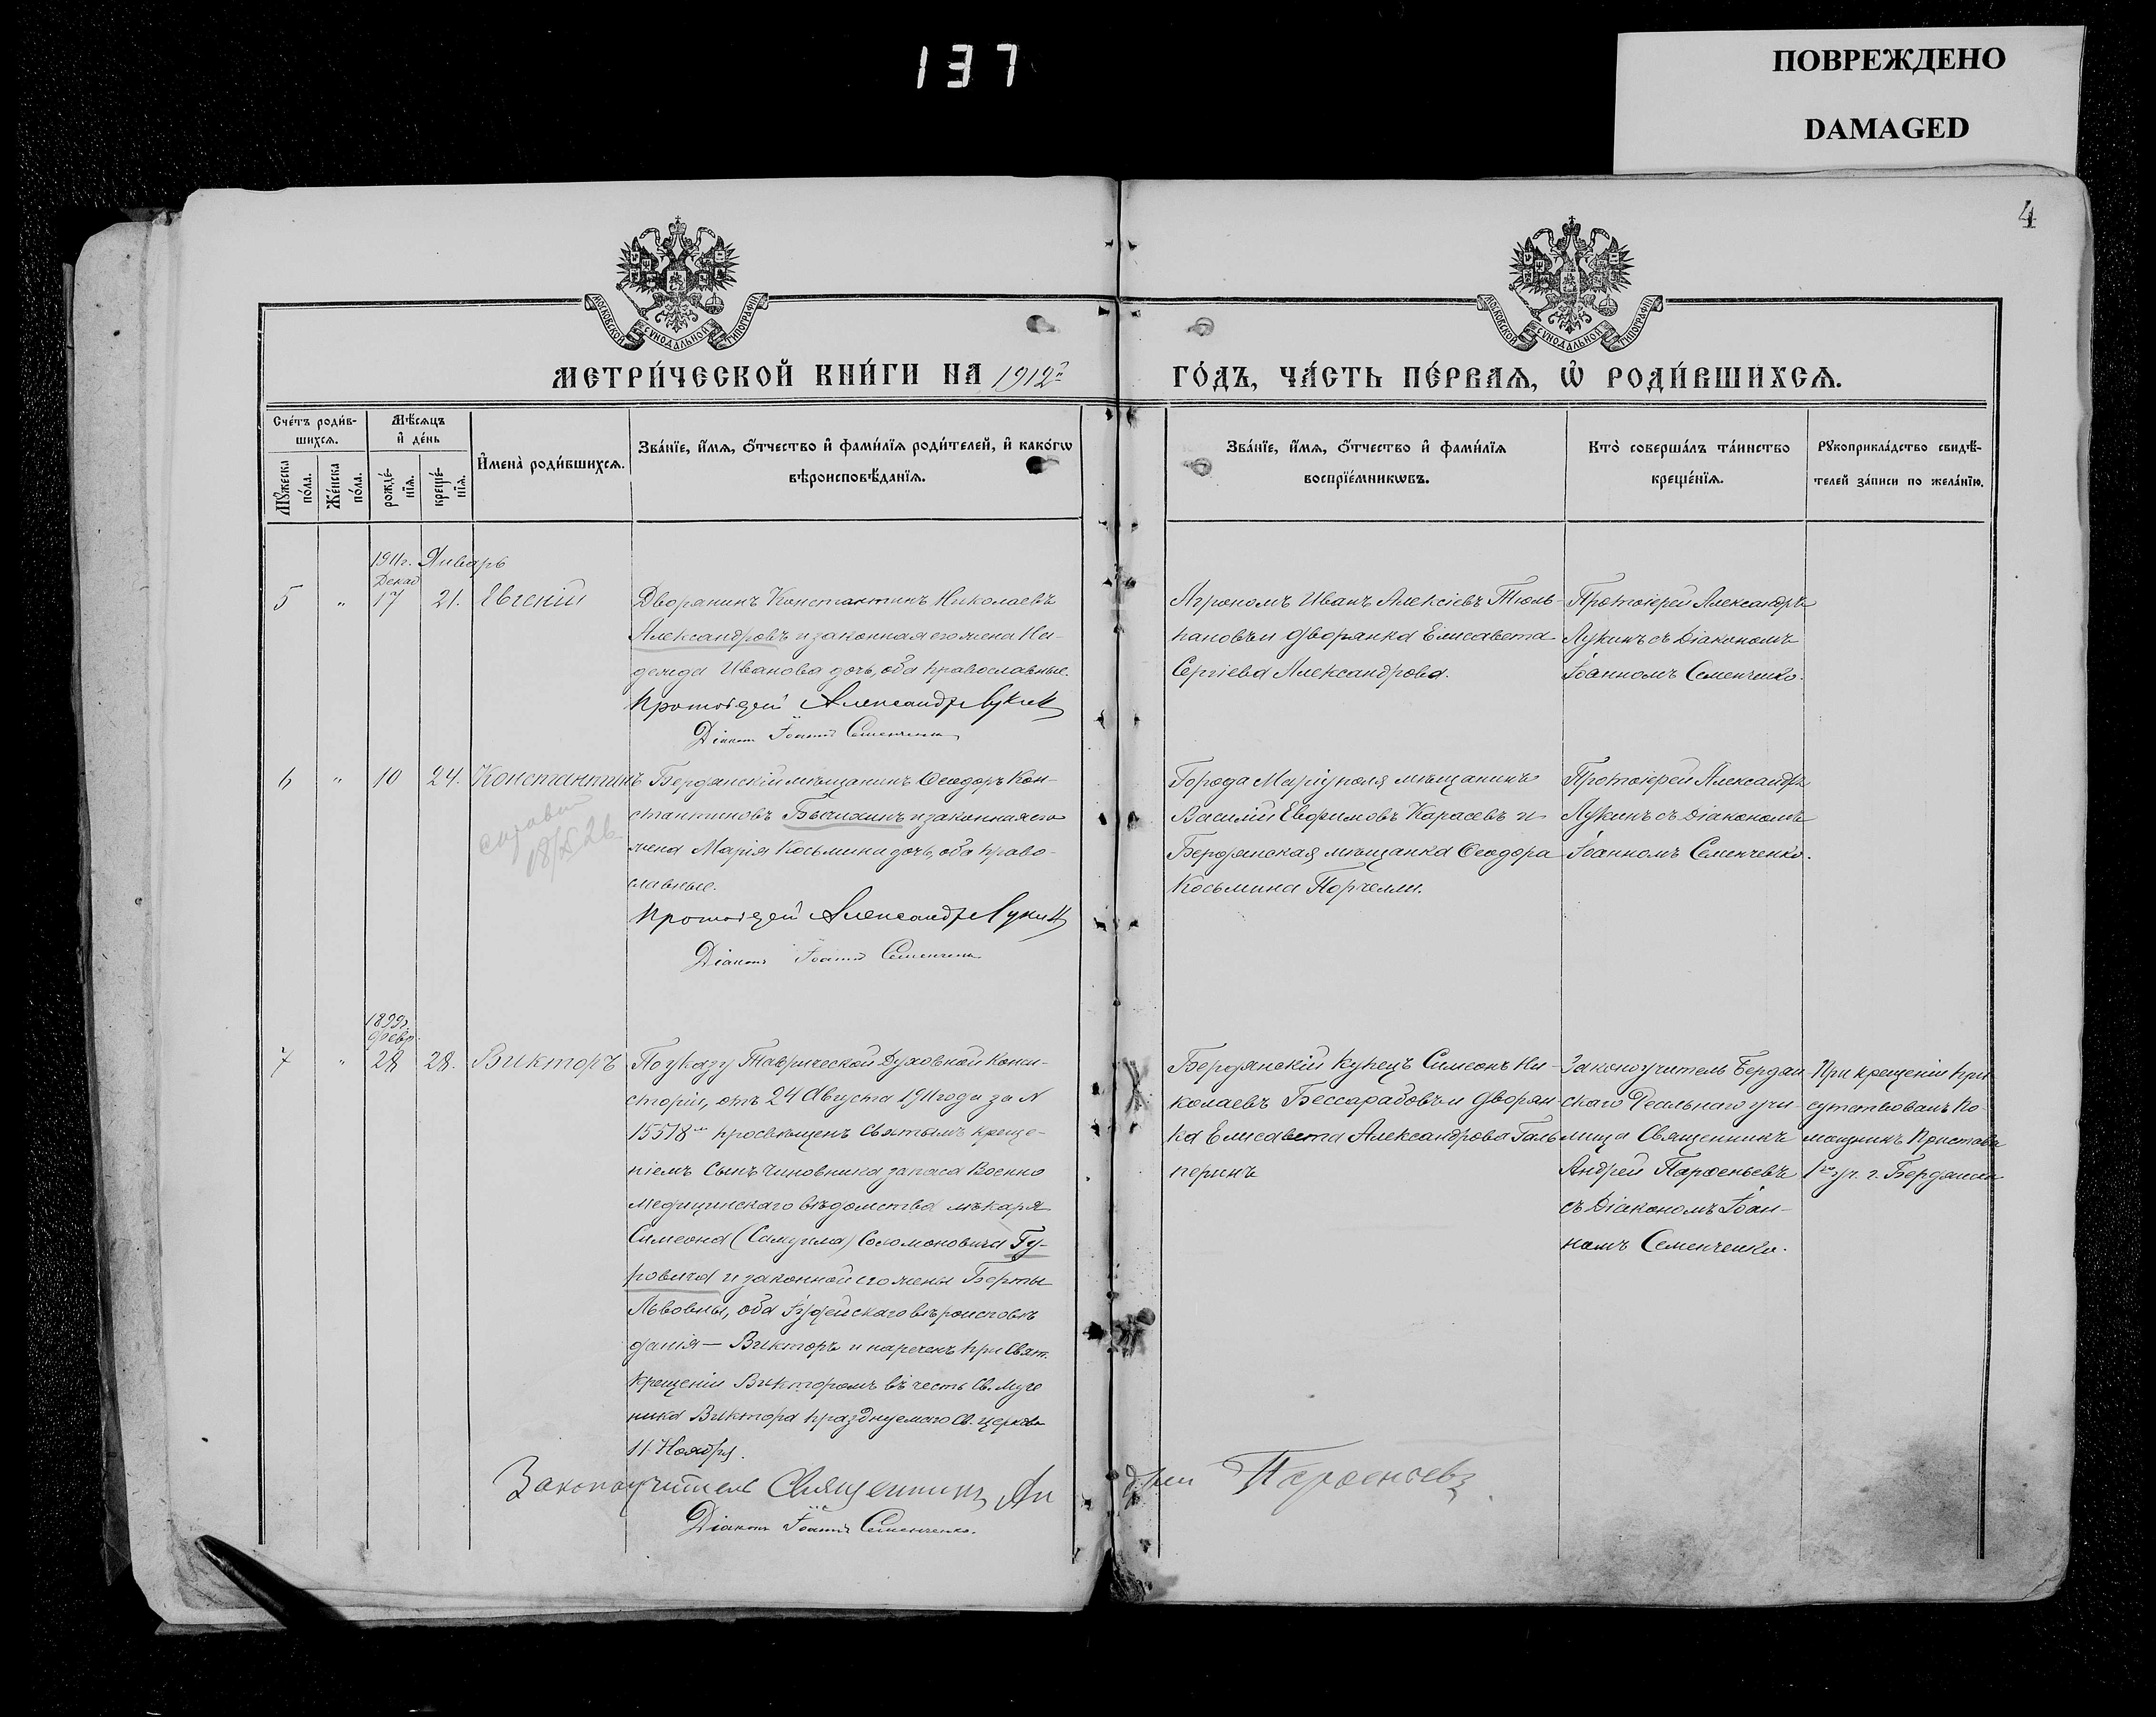 137
ПОВРЕЖДЕНО
DAMAGED
4
МОСКОВСКОЙ СѴНОДАЛЬНОЙ ТИПОГРАФІИ
МОСКОВСКОЙ СѴНОДАЛЬНОЙ ТИПОГРАФІИ
МЕТРИ́ЧЕСКОЙ КНИ́ГИ НА 1912 г.
ГО́ДЪ, ЧА́СТЬ ПЕ́РВАѦ, Ѡ҆ РОДИ́ВШИХСѦ.
Сче́тъ роди́в-
шихсѧ.
Мѣ́сѧцъ
и҆ де́нь
Мꙋ́жеска
по́ла.
Же́нска
по́ла.
рожде́-
нїѧ.
креще́-
нїѧ.
И҆мена̀ роди́вшихсѧ.
Зва́нїе, и҆́мѧ, ѻ҆́тчество и҆ фами́лїѧ роди́телей, и҆ како́гѡ
вѣроисповѣ́данїѧ.
Зва́нїе, и҆́мѧ, ѻ҆́тчество и҆ фами́лїѧ
воспрїе́мникѡвъ.
Кто̀ соверша́лъ та́инство
креще́нїѧ.
Рꙋкоприкла́дство свидѣ́-
телей за́писи по жела́нїю.
1911 г. Январь
Декаб
5 " 17 21. Евгеній
Дворянинъ Константинъ Николаевъ
Александровъ и законная его жена На-
дежда Иванова дочь, оба православные.
Протоіерей Александръ Лукинъ
Діаконъ Іоаннъ Семенченко
Агрономъ Иванъ Алексіевъ Тюль-
пановъ и дворянка Елисавета
Сергіева Александрова.
Протоіерей Александръ
Лукинъ съ Діакономъ
Іоанномъ Семенченко.
6 " 10 24. Константинъ
справка
18/X 26
Бердянскій мѣщанинъ Ѳеодоръ Кон-
стантиновъ Бычихинъ и законная его
жена Марія Косьмина дочь, оба право-
славные.
Протоіерей Александръ Лукинъ
Діаконъ Іоаннъ Семенченко
Города Маріуполя мѣщанинъ
Василій Евфимовъ Карасевъ и
Бердянская мѣщанка Ѳеодора
Косьмина Порчелли.
Протоіерей Александръ
Лукинъ съ Діакономъ
Іоанномъ Семенченко.
1899 г.
Февр.
7 " 28 28. Викторъ
По указу Таврической Духовной Конси-
сторіи, отъ 24 Августа 1911 года за N
15518 просвѣщенъ Святымъ Креще-
ніемъ сынъ чиновника запаса Военно
Медицинскаго вѣдомства лѣкаря
Симеона (Самуила) Соломоновича Гу-
ровича и законной его жены Берты
Львовны, оба Іудейскаго вѣроисповѣ
данія — Викторъ и нареченъ при Свят.
Крещеніи Викторомъ въ честь Св. Муче
ника Виктора празднуемаго Св. церковью
11 Ноября.
Законоучитель Священникъ Андрей Парѳеньевъ
Діаконъ Іоаннъ Семенченко.
Бердянскій купецъ Симеонъ Ни-
колаевъ Бессарабовъ и дворян-
ка Елисавета Александрова Галь
перинъ
Законоучитель Бердян-
скаго Реальнаго учи-
лища Священникъ
Андрей Парѳеньевъ
съ Діакономъ Іоан-
номъ Семенченко.
При крещеніи при
сутствовалъ По-
мощникъ Пристава
1го уч. г. Бердянска